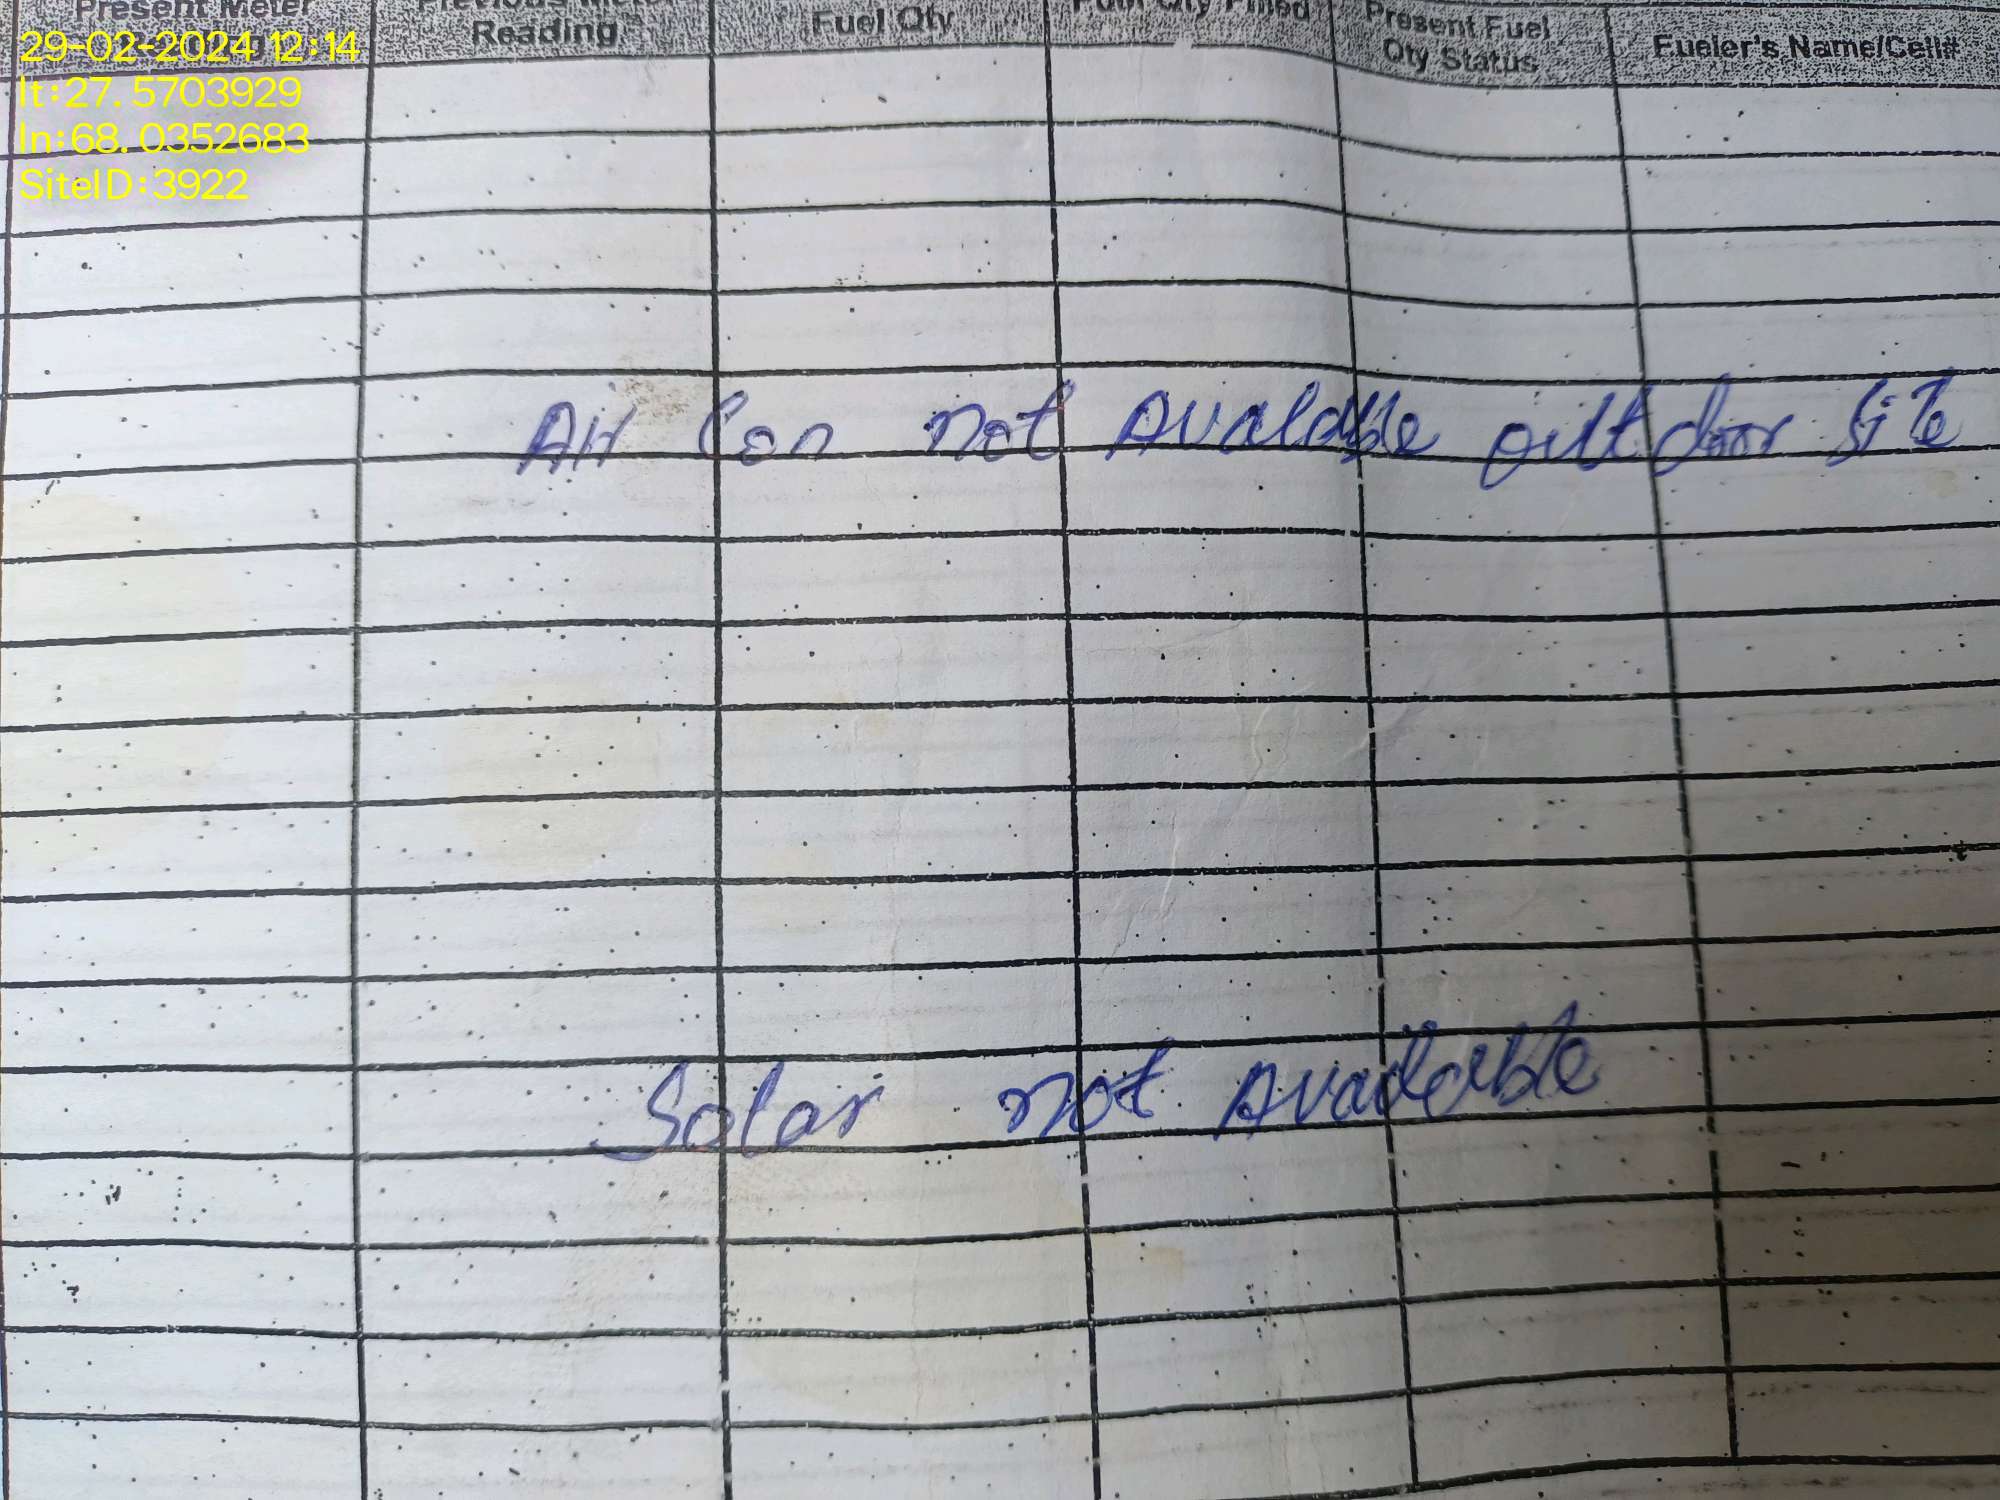 Present Meter
Previous Meter Reading
Fuel Qty
Fuel Qty Filled
Present Fuel Qty Status
Fueler's Name/Cell#
29-02-2024 12:14
lt:27.5703929
ln:68.0352683
SiteID:3922
Con not Avalable outdoor site
Solar not Available